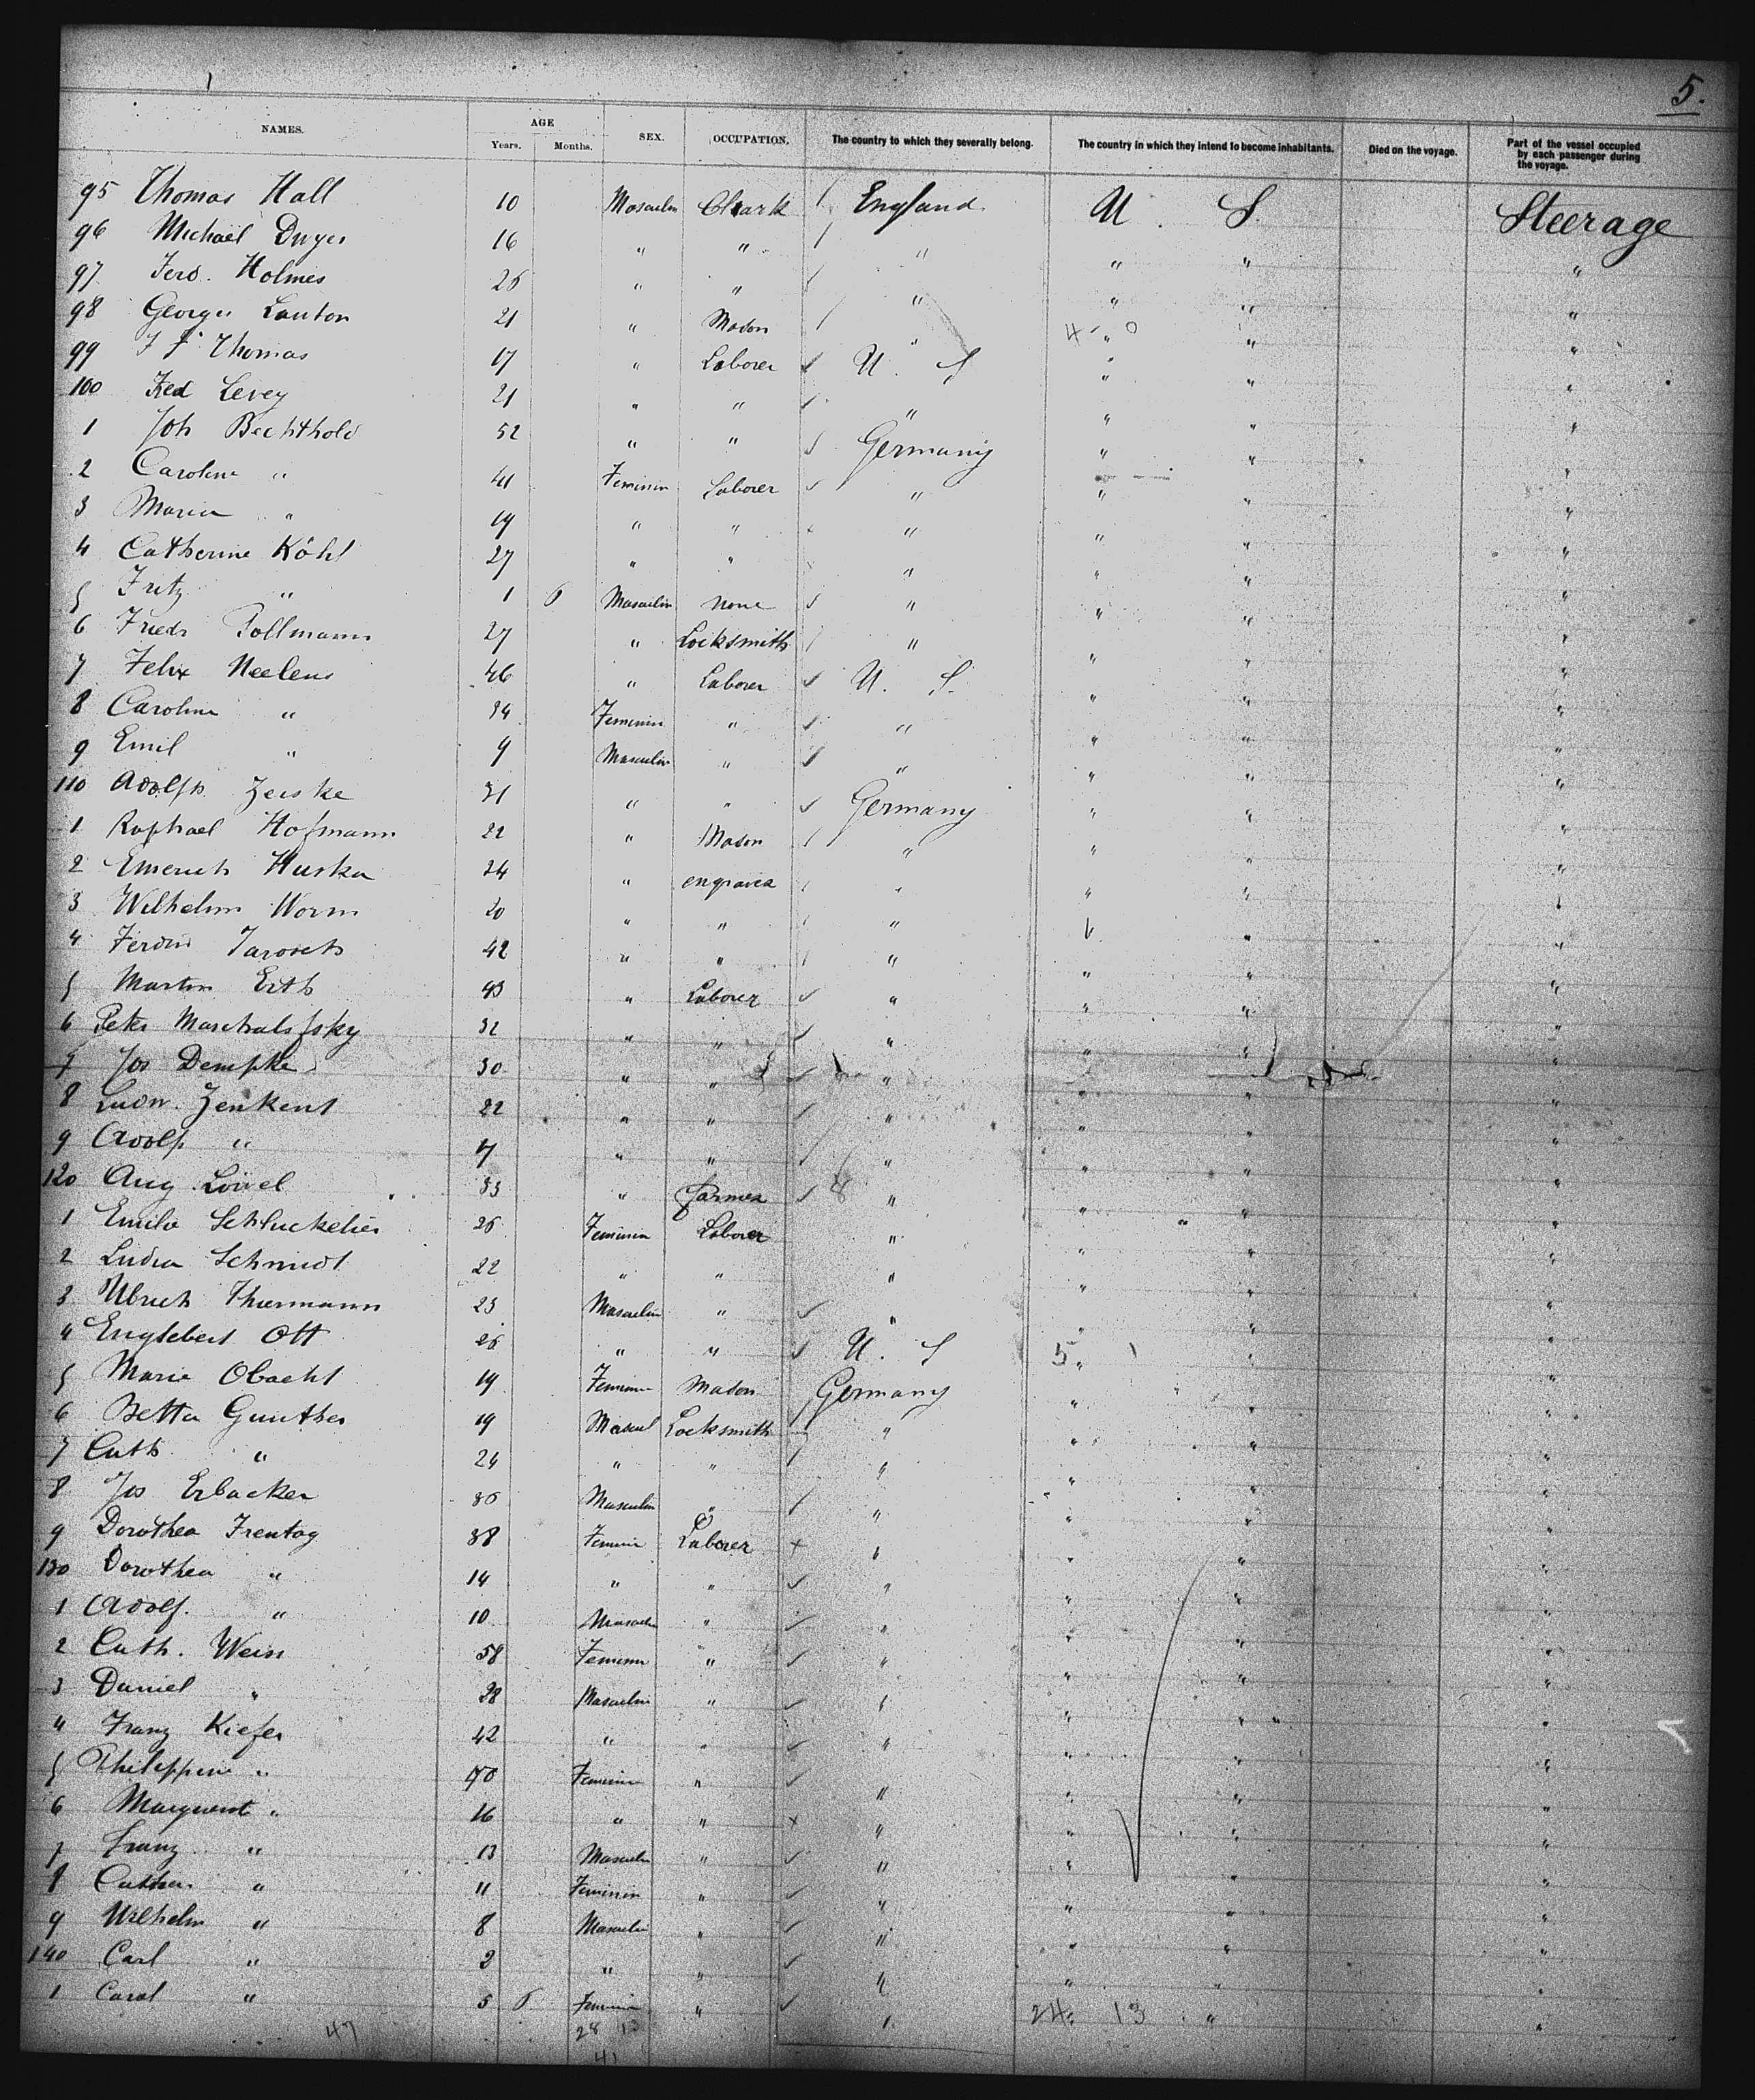 5.
NAMES. AGE Years. Months. SEX. OCCUPATION. The country to which they severally belong. The country in which they intend to become inhabitants. Died on the voyage. Part of the vessel occupied by each passenger during the voyage.
95 Thomas Hall 10 Masculin Clark England U. S Steerage
96 Michael Dwyer 16 " " " " " "
97 Ferd. Holmes 26 " " " " " "
98 George Lauton 21 " Mason " " " "
99 J J Thomas 17 " Laborer U. S " " "
100 Fred Levey 21 " " " " " "
1 Joh Bechthold 52 " " Germany " " "
2 Caroline " 41 Feminin Laborer " " " "
3 Maria " 19 " " " " " "
4 Catherine Köhl 27 " " " " " "
5 Fritz " 1 6 Masculin None " " " "
6 Friedr Pollmann 27 " Locksmith " " " "
7 Felix Neelens 46 " Laborer U. S. " " "
8 Caroline " 34 Feminin " " " " "
9 Emil " 9 Masculin " " " " "
110 Adolph Zeiske 31 " " Germany " " "
1 Raphael Hofmann 22 " Mason " " " "
2 Emerich Huska 24 " engraver " " " "
3 Wilhelm Worm 20 " " " " " "
4 Ferdin Jarosch 42 " " " " " "
5 Martin Erth 43 " Laborer " " " "
6 Peter 32 " " " " " "
7 Jos Dempke 30 " " " " " "
8 Ludw. Zenkent 22 " " " " " "
9 Adolf " 17 " " " " " "
120 Aug Löwel 33 " Farmer " " " "
1 Emilie Schluckebier 26 Feminin Laborer " " " "
2 Ludia Schmidt 22 " " " " " "
3 Ulrich Thiermann 23 Masculin " " " " "
4 Englebert Ott 26 " " U. S " " "
5 Marie Obacht 19 Feminin Mason Germany " " "
6 Betta Gunther 19 Mascul Locksmith " " " "
7 Cath " 24 " " " " " "
8 Jos Erbacker 36 Masculin " " " " "
9 Dorothea Freutag 38 Feminin Laborer " " " "
130 Dorothea " 14 " " " " " "
1 Adolf. " 10 Masculin " " " " "
2 Cath. Weiss 58 Feminin " " " " "
3 Daniel " 28 Masculin " " " " "
4 Franz Kiefer 42 " " " " " "
5 Philippine " 40 Feminin " " " " "
6 Marguerit " 16 " " " " " "
7 Franz " 13 Masculin " " " " "
8 Cathar. " 11 Feminin " " " " "
9 Wilhelm " 8 Masculin " " " " "
140 Carl " 2 " " " " " "
1 Carol " 5 6 Feminin " " 24 13 " "
47 28 13
41